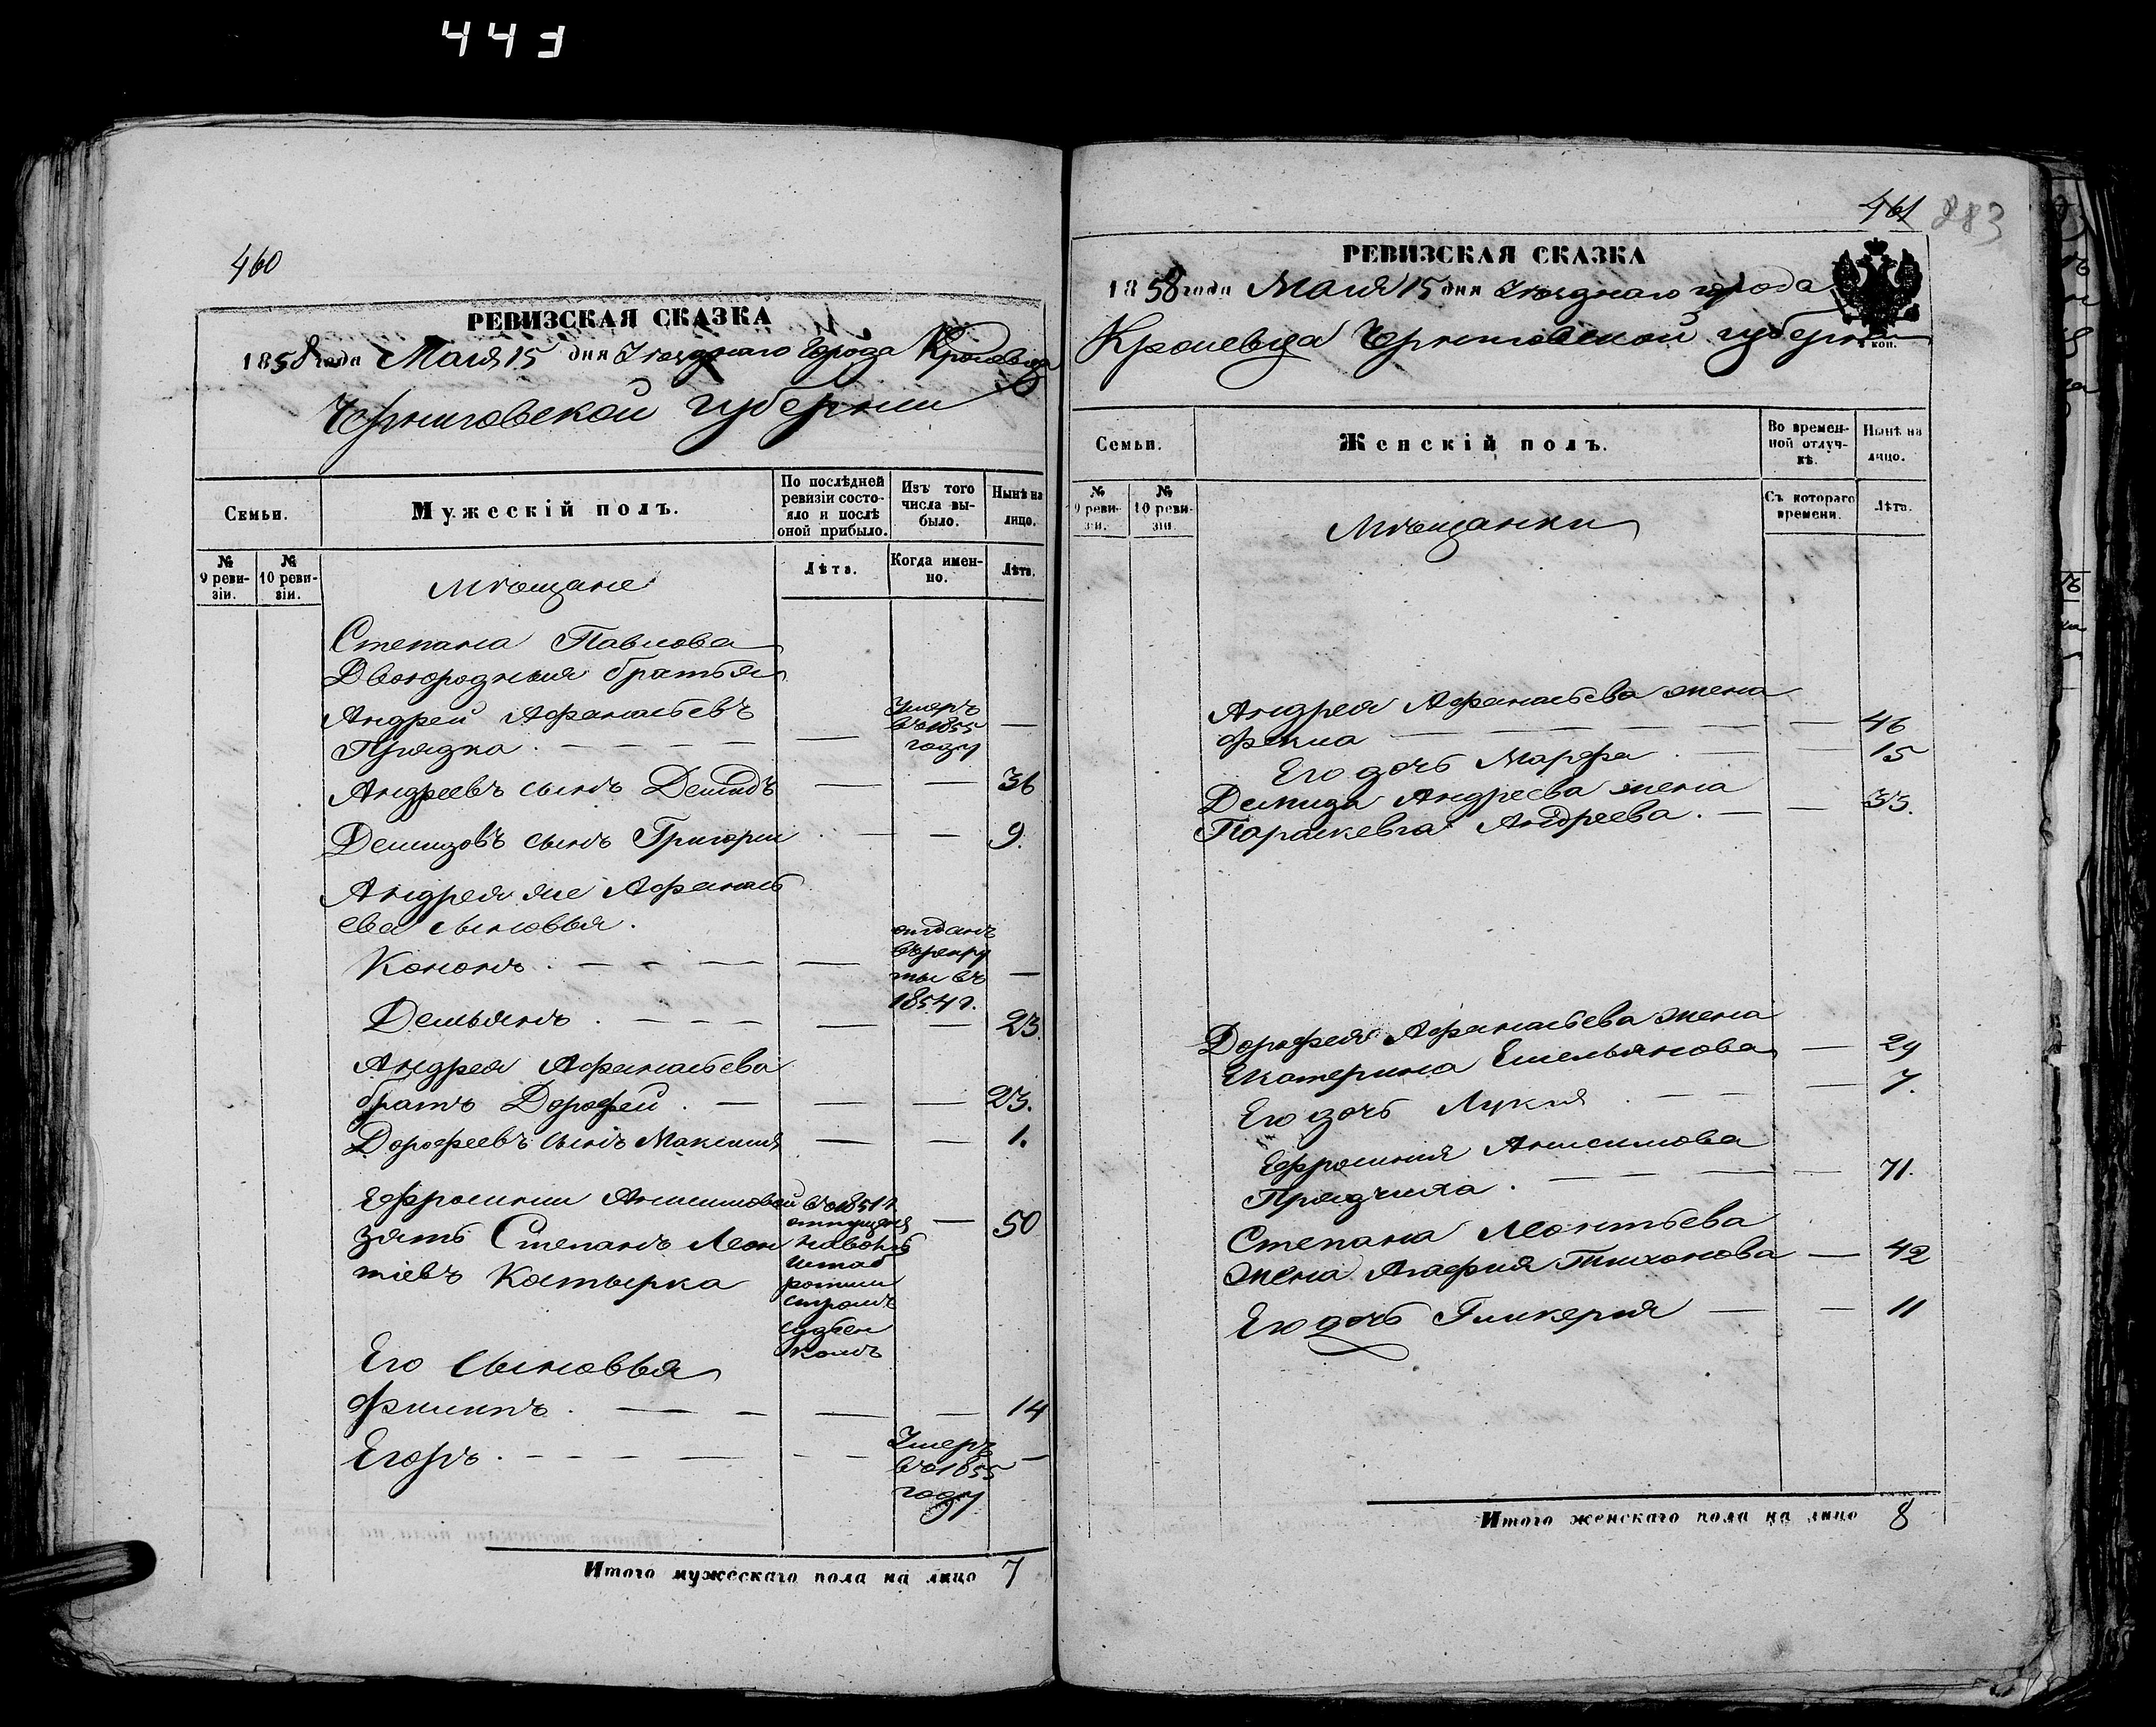 443
460
РЕВИЗСКАЯ СКАЗКА
1858 года Маія 15 дня Уѣзднаго города Кролевца
Черниговской губерніи
Семьи.
Мужескій полъ.
По послѣдней ревизіи состояло и послѣ оной прибыло.
Изъ того числа выбыло.
Нынѣ на лицо.
№ 9 ревизіи.
№ 10 ревизіи.
Мѣщане
Лѣта.
Когда именно.
Лѣта.
Степана Павлова
Двоюродныя братья
Андрей Афанасьевъ
Прядка . — — — — — Умеръ въ 1855 году —
Андреевъ сынъ Демидъ — — 36
Демидовъ сынъ Григорій . — — 9.
Андрея же Афанась
ева сыновья.
Кононъ . — — — — — отданъ въ рекру ты въ 1854 г. —
Демьянъ . — — — — — 23.
Андрея Афанасьева
братъ Дорофей . — — — 23.
Дорофеевъ сынъ Максимъ — — 1.
Ефросиніи Анисимовой
зять Степанъ Леон
тіевъ Костырка
въ 1851 г.
отпущенъ
на волю
штаб
ротми
стромъ
— 50
Его сыновья
Филипъ . — — — — — 14
Егоръ . — — — — — — Умеръ въ 1855 году —
Итого мужескаго пола на лицо 7
461
283
РЕВИЗСКАЯ СКАЗКА
1858 года Маія 15 дня Уѣзднаго города
Кролевца Черниговской губерніи
коп.
Семьи.
Женскій полъ.
Во временной отлучкѣ.
Нынѣ на лицо.
№ 9 ревизіи.
№ 10 ревизіи.
Мѣщанки
Съ котораго времени.
Лѣта.
Андрея Афанасьева жена
Фекла — — — — — — 46
Его дочь Марфа . — — 15
Демида Андреева жена
Параскевіа Андреева . — — 33.
Дорофея Афанасьева жена
Екатерина Емельянова — 29
Его дочь Лукія . — — — 7.
Ефросинія Анисимова
Прядчиха . — — — — 71.
Степана Леонтьева
жена Агафія Тихонова — 42
Его дочь Гликерія — — 11
Итого женскаго пола на лицо 8